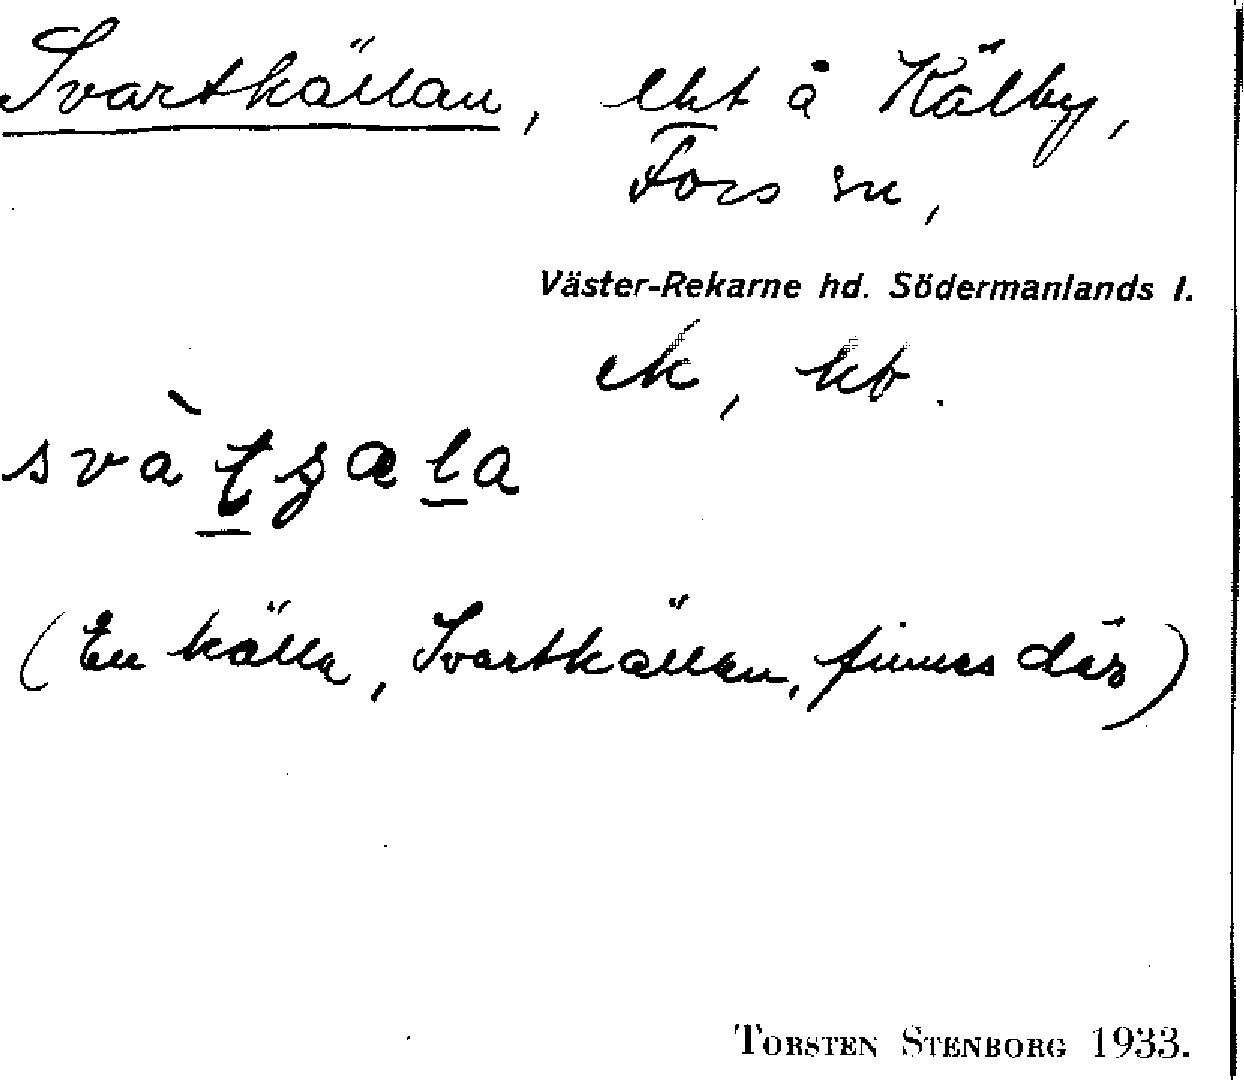 Svartkällan, lht å Kälby,
Fors sn,
Väster-Rekarne hd. Södermanlands l.
ek, kb.
(En källa, Svartkällan, finnes där)
TORSTEN STENBORG 1933.